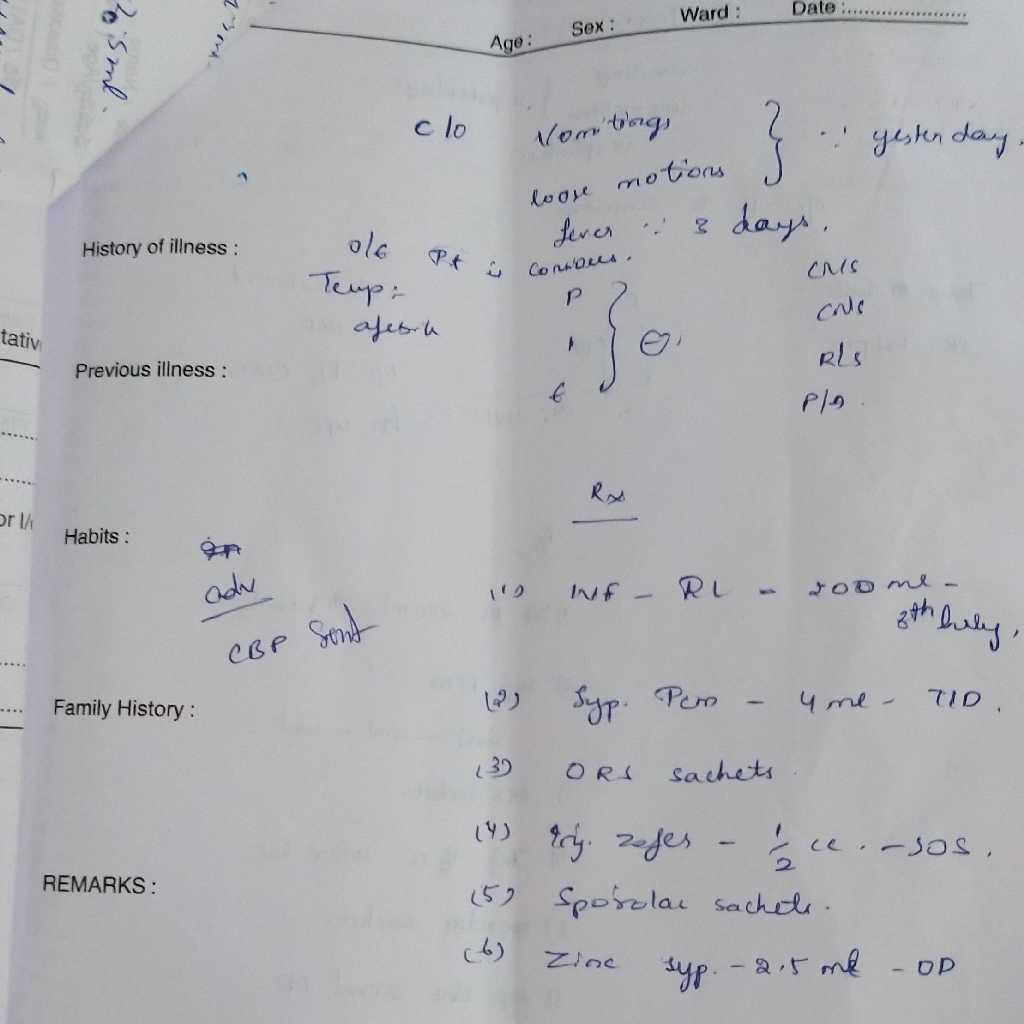 2.5ml.
Age : Sex : Ward : Date :......................
c/o Vomitings ∵ yesterday.
loose motions
fever ∵ 3 days.
History of illness : o/e Pt is conscious.
Temp :- P CVS
afebrile CNS
I ⊖ R/S
Previous illness :
E P/A
Rx
Habits :
adv (1) IVF - RL - 200 ml -
CBP Sent
Family History : (2) Syp. Pcm - 4 ml - TID.
(3) ORS sachets
(4) Inj. zofer - 1/2 cc. - SOS.
REMARKS :
(5) Sporolac sachets.
(6) Zinc syp. - 2.5 ml - OD